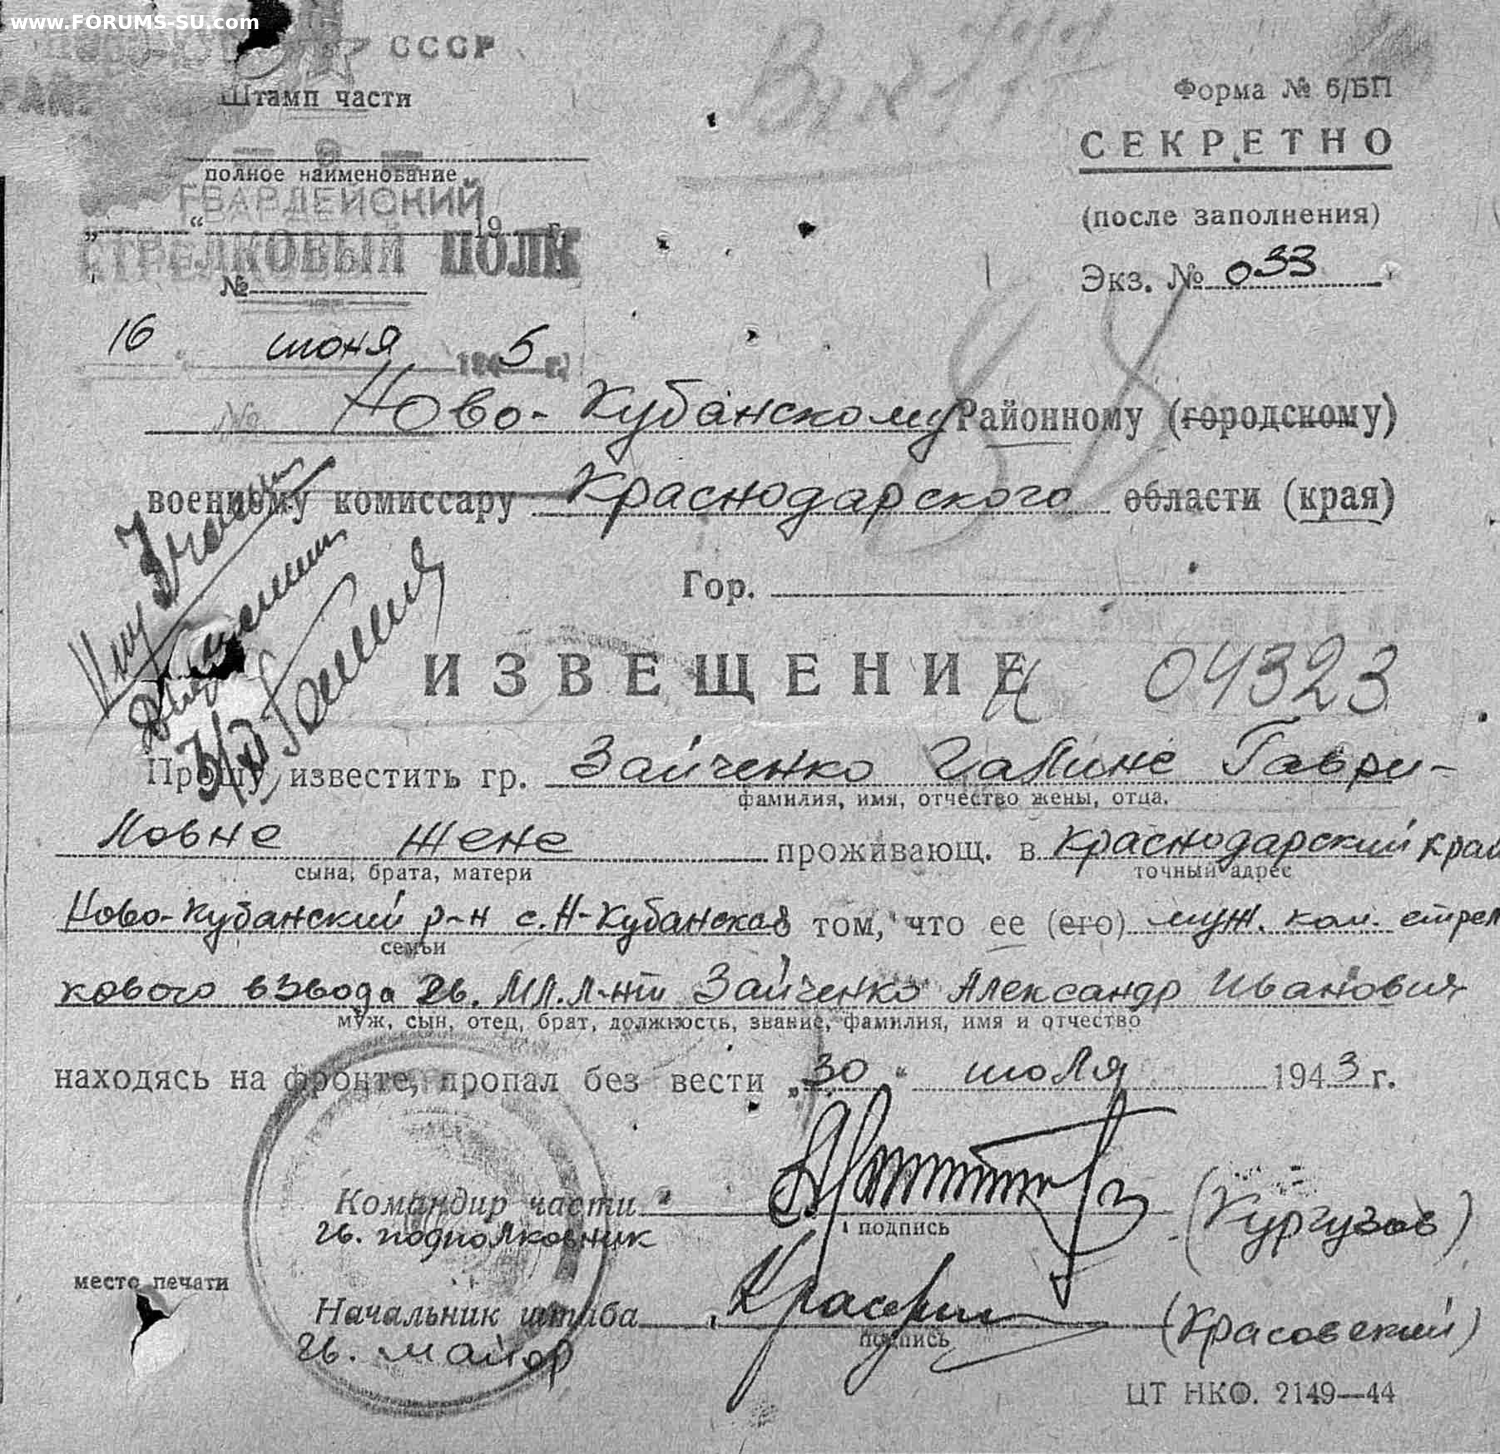 www.FORUMS-SU.com
СССР
Штамп части
Форма № 6/БП
СЕКРЕТНО
полное наименование
ГВАРДЕЙСКИЙ
(после заполнения)
„ “ 19 г.
СТРЕЛКОВЫЙ ПОЛК
№
Экз. № 033
16 июня 1945 г.
№
Ново-Кубанскому Районному (городскому)
военному комиссару Краснодарского области (края)
Гор.
ИЗВЕЩЕНИЕ 04323
Прошу известить гр. Зайченко Галине Гаври-
фамилия, имя, отчество жены, отца,
ловне жене проживающ. в Краснодарский край
сына, брата, матери точный адрес
Ново-Кубанский р-н с. Н-Кубанская том, что ее (его) муж. ком. стрел
семьи
кового взвода гв. мл. л-нт Зайченко Александр Иванович
муж, сын, отец, брат, должность, звание, фамилия, имя и отчество
находясь на фронте, пропал без вести „30“ июля 1943 г.
Командир части (Кургузов)
гв. подполковник подпись
место печати
Начальник штаба (Красовский)
гв. майор подпись
ЦТ НКО. 2149—44